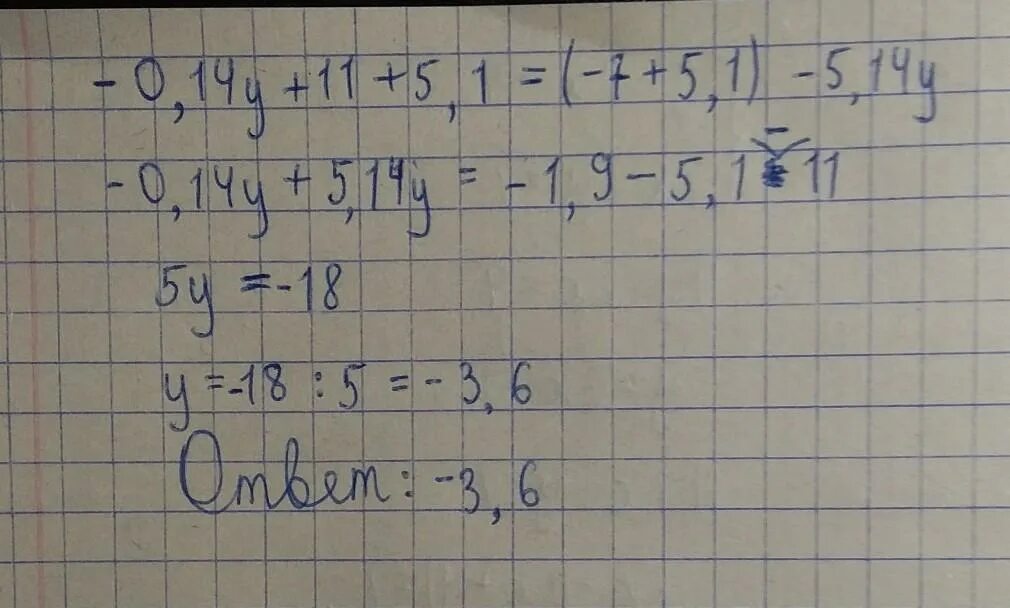 -0,14y+11+5,1=(-7+5,1) -5,14y
-0,14y+5,14y=-1,9-5,1-11
5y=-18
y=-18:5=-3,6
Ответ: -3,6